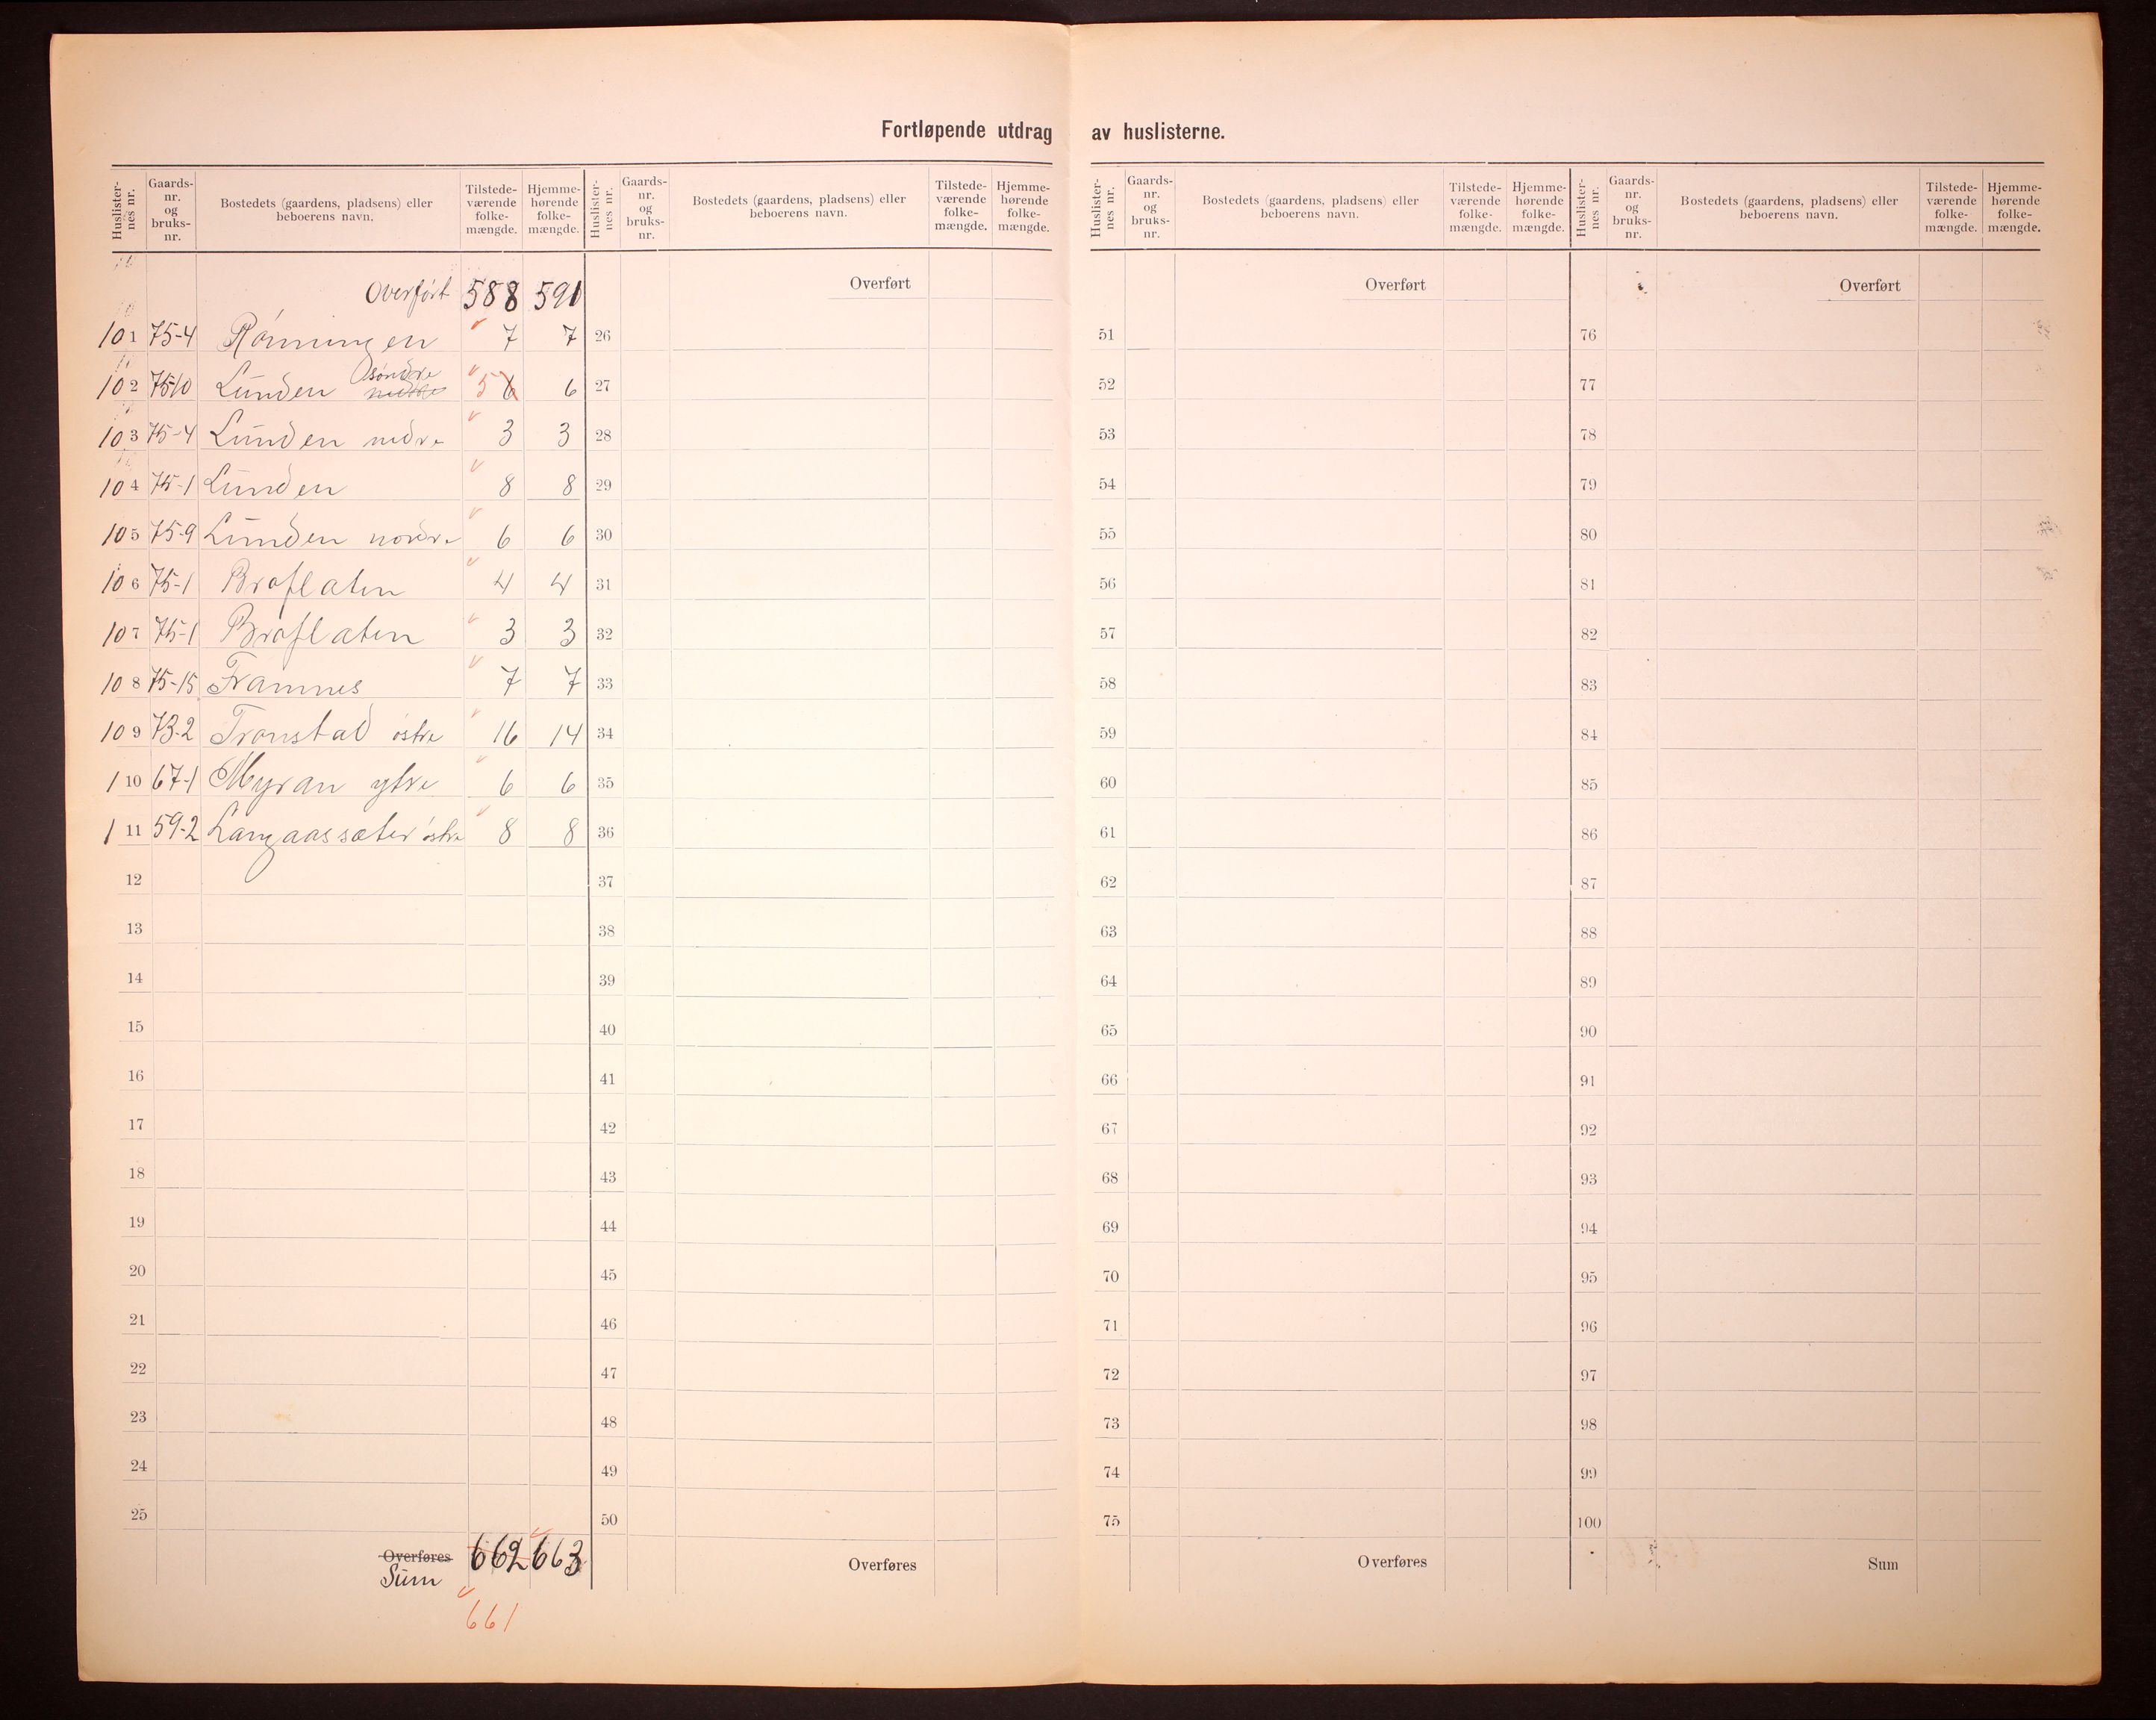 Fortløpende utdrag av huslisterne.
Huslisternes nr. Gaards-nr. og bruks-nr. Bostedets (gaardens, pladsens) eller beboerens navn. Tilstede-værende folke-mængde. Hjemme-hørende folke-mængde.
Overført 588 591
101 75-4 Rønningen 7 7
102 75-10 Lunden søndre 5 6 6
103 75-4 Lunden nedre 3 3
104 75-1 Lunden 8 8
105 75-9 Lunden nordre 6 6
106 75-1 Broflaten 4 4
107 75-1 Broflaten 3 3
108 75-15 Framnes 7 7
109 73-2 Tronstad østre 16 14
110 67-1 Myran ytre 6 6
111 59-2 Langaassæter østre 8 8
12
13
14
15
16
17
18
19
20
21
22
23
24
25
Overføres
Sum 662 663
661
Huslisternes nr. Gaards-nr. og bruks-nr. Bostedets (gaardens, pladsens) eller beboerens navn. Tilstede-værende folke-mængde. Hjemme-hørende folke-mængde.
Overført
26
27
28
29
30
31
32
33
34
35
36
37
38
39
40
41
42
43
44
45
46
47
48
49
50
Overføres
Huslisternes nr. Gaards-nr. og bruks-nr. Bostedets (gaardens, pladsens) eller beboerens navn. Tilstede-værende folke-mængde. Hjemme-hørende folke-mængde.
Overført
51
52
53
54
55
56
57
58
59
60
61
62
63
64
65
66
67
68
69
70
71
72
73
74
75
Overføres
Huslisternes nr. Gaards-nr. og bruks-nr. Bostedets (gaardens, pladsens) eller beboerens navn. Tilstede-værende folke-mængde. Hjemme-hørende folke-mængde.
Overført
76
77
78
79
80
81
82
83
84
85
86
87
88
89
90
91
92
93
94
95
96
97
98
99
100
Sum